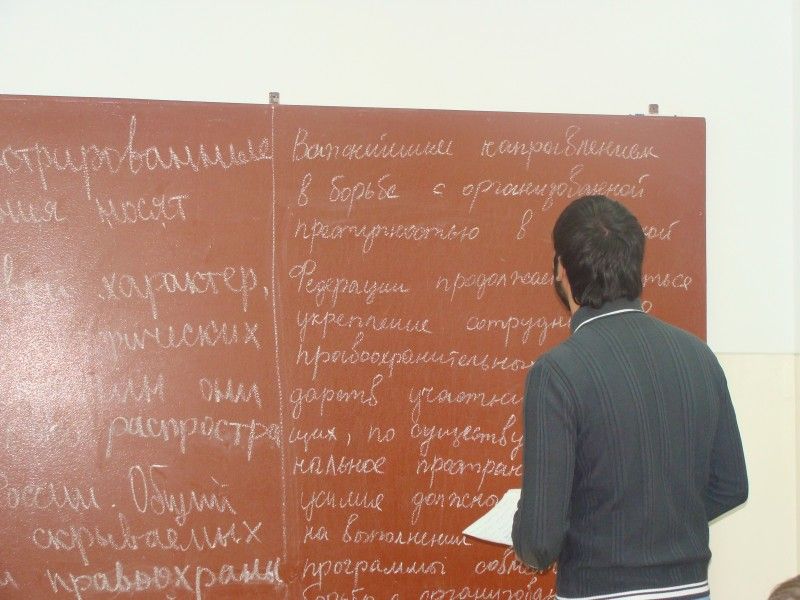 стрированные
ния носят
характер,
ических
они
распростра
России. Общий
скрываемых
и правоохраны
Важнейшим направлением
в борьбе с организованной
преступностью в
Федерации продолжает
укрепление сотрудн
правоохранительны
дарств участни
щих, по существу
нальное простран
усилие должно
на выполнении
программы совм
борьбе с организован